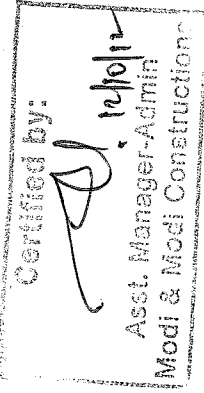 Certified by:
12/10/12
Asst. Manager-Admin
Modi & Modi Constructions